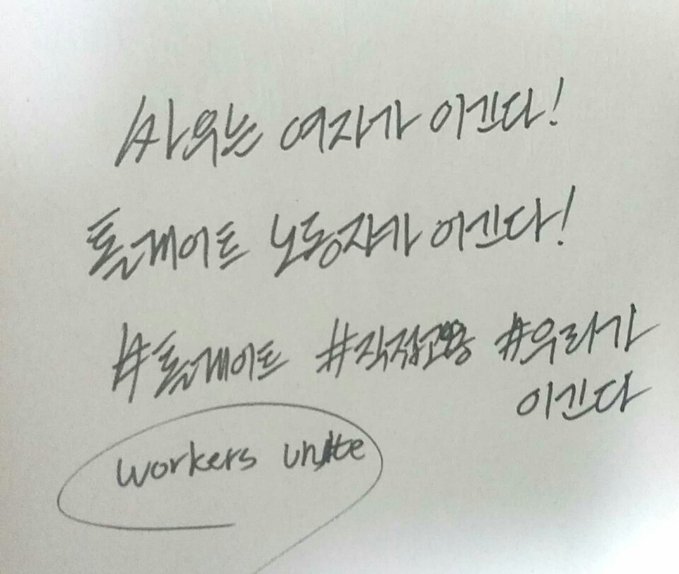 싸우는 여자가 이긴다!
톨게이트 노동자가 이긴다!
#톨게이트 #직접고용 #우리가
이긴다
workers unite